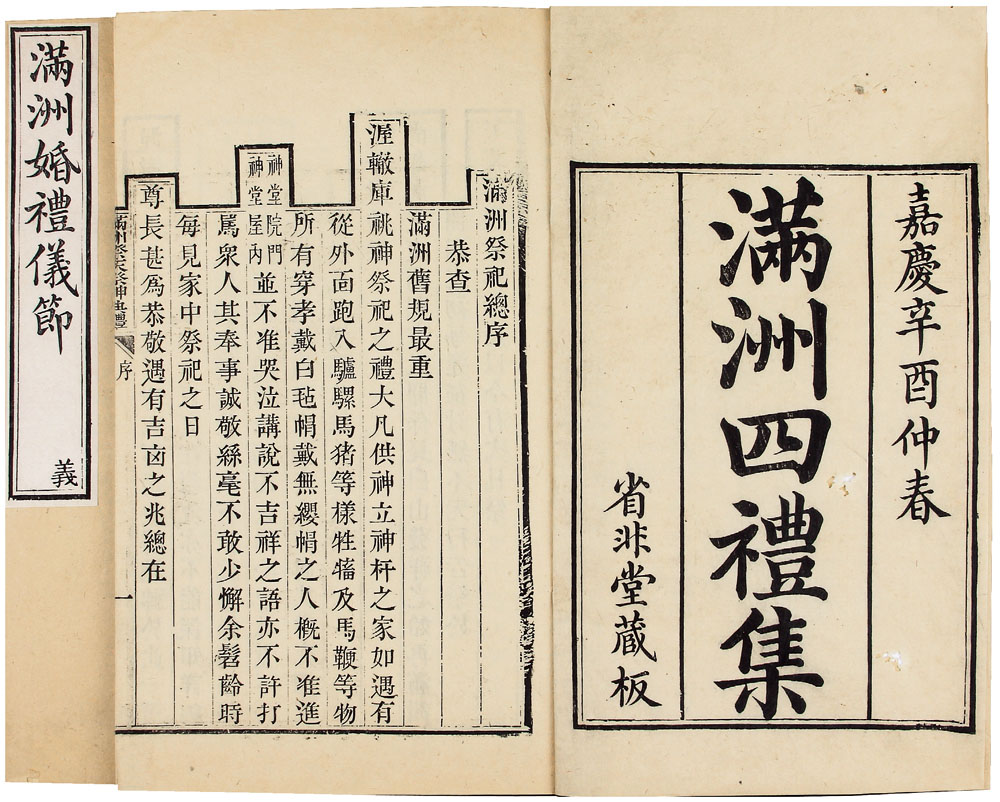 嘉慶辛酉仲春
滿洲四禮集
省非堂藏板
滿洲祭祀總序
恭查
滿洲舊規最重
渥轍庫祧神祭祀之禮大凡供神立神杆之家如遇有
從外面跑入驢騾馬猪等樣牲及馬鞭等物
所有穿孝戴白毡帽戴無纓帽之人概不准進
神堂院門
神堂屋内
並不准哭泣講說不吉祥之語亦不許打
罵衆人其奉事誠敬絲毫不敢少懈余髫齡時
每見家中祭祀之日
尊長甚爲恭敬遇有吉凶之兆總在
滿洲祭天祭神典禮 序 一
滿洲婚禮儀節
義